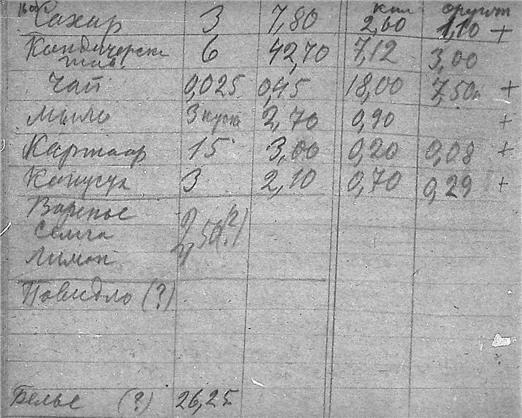 кил
Сахар 3 7,80 2,60 1,10 +
Кондитерски 6 42,70 7,12 3,00
Чай 0,025 0,45 18,00 7,50 +
Мыло 3 куска 2,70 0,90 +
Картофр 15 3,00 0,20 0,08 +
Капуста 3 2,10 0,70 0,29 +
Варенье
Семга 2,50(?)
Лимон
Повидло (?)
Белье (?) 26,25